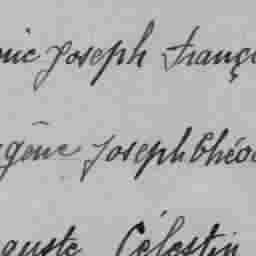 nic Joseph Franç
gène Joseph Théo
guste Célestin